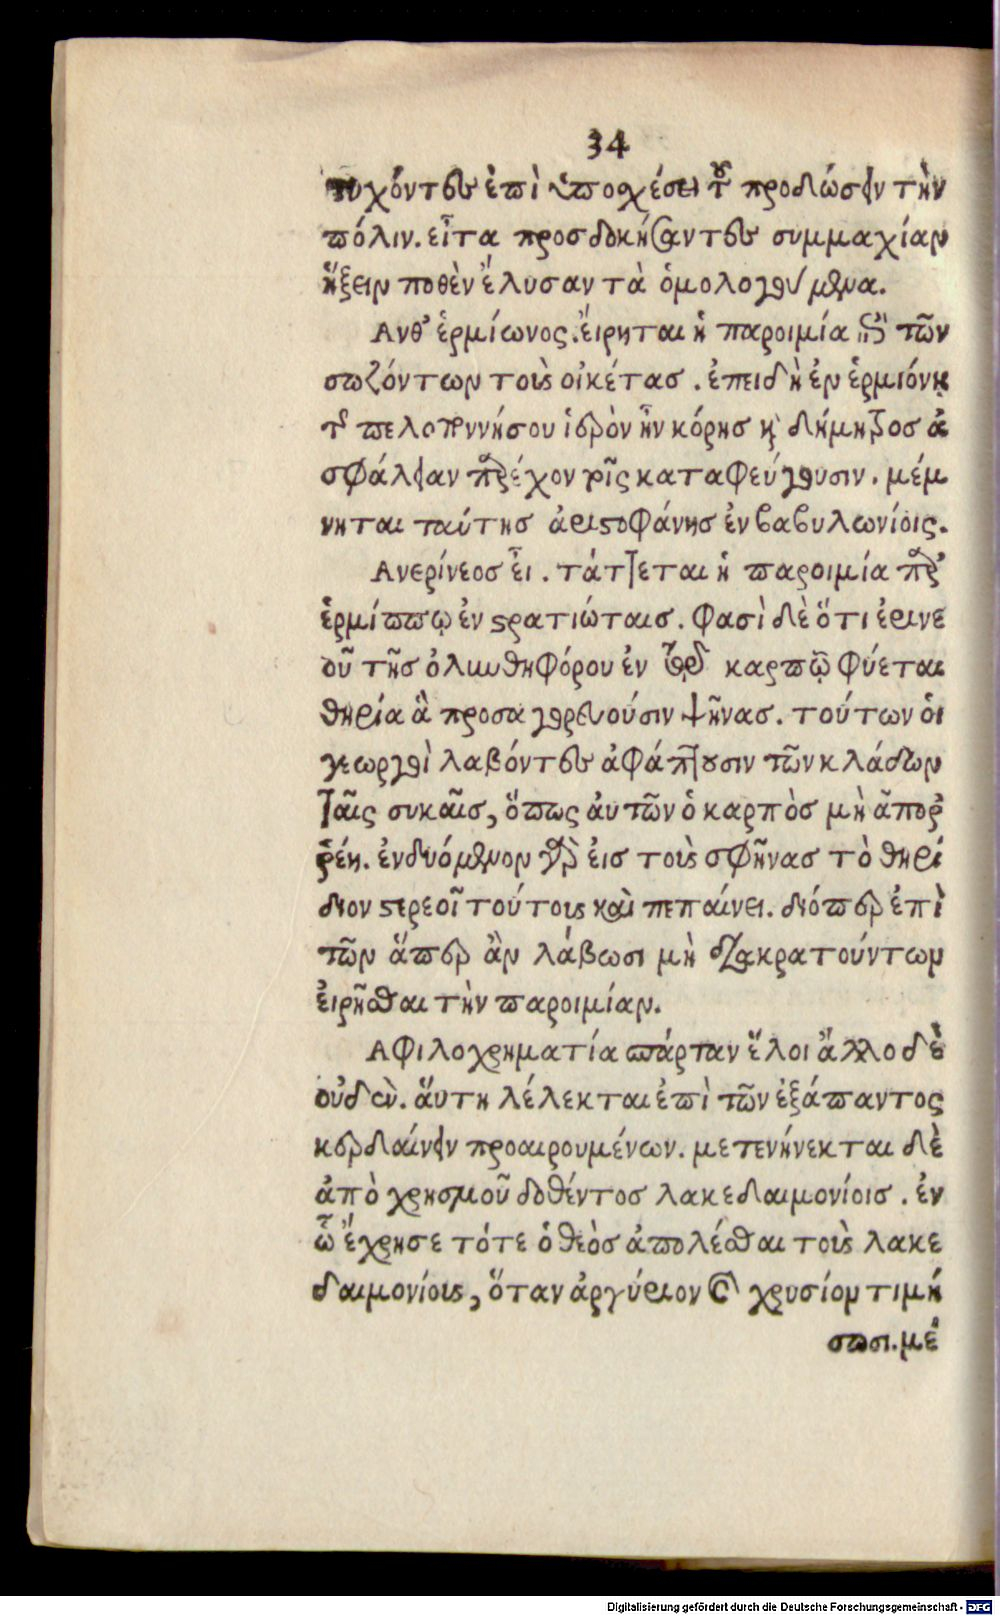 34
τυχόντες ἐπὶ ὑποσχέσει τοῦ προδώσειν τὴν
πόλιν. εἶτα προσδοκήσαντες συμμαχίαν
ἥξειν ποθὲν ἔλυσαν τὰ ὁμολογούμενα.
Ανθ' ἑρμίωνος. ἔιρηται ἡ παροιμία ἐπὶ τῶν
σωζόντων τοὺς οἰκέτας. ἐπειδὴ ἐν ἑρμιόνῃ
τῆς πελοποννήσου ἱερὸν ἦν κόρης καὶ δήμητρος ἀ
σφάλειαν παρέχον τοῖς καταφεύγουσιν. μέμ
νηται ταύτης ἀριστοφάνης ἐν βαβυλωνίοις.
Ανερίνεος εἶ. τάττεται ἡ παροιμία παρ'
ἑρμίππῳ ἐν στρατιώταις. φασὶ δὲ ὅτι ἐρινε
οῦ τῆς ὀλυνθηφόρου ἐν τῷ καρπῷ φύεται
θηρία ἃ προσαγορεύουσιν ψῆνας. τούτων ὁι
γεωργοὶ λαβόντες ἀφάπτουσιν τῶν κλάδων
ταῖς συκαῖς, ὅπως ἀυτῶν ὁ καρπὸς μὴ ἄπορ
ῥέῃ. ἐνδυόμενον γὰρ ἐις τοὺς σφῆνας τὸ θηρί
διον στερεοῖ τούτους καὶ πεπαίνει. διόπερ ἐπὶ
τῶν ἅπερ ἂν λάβωσι μὴ διακρατούντων
ἐιρῆσθαι τὴν παροιμίαν.
Αφιλοχρηματία σπάρταν ἕλοι ἄλλο δὲ
οὐδέν. ἅυτη λέλεκται ἐπὶ τῶν ἐξάπαντος
κερδαίνειν προαιρουμένων. μετενήνεκται δὲ
ἀπὸ χρησμοῦ δοθέντος λακεδαιμονίοις. ἐν
ᾧ ἔχρησε τότε ὁ θεὸς ἀπολέσθαι τοὺς λακε
δαιμονίους, ὅταν ἀργύριον καὶ χρυσίον τιμή
σωσι. μέ
Digitalisierung gefördert durch die Deutsche Forschungsgemeinschaft - DFG